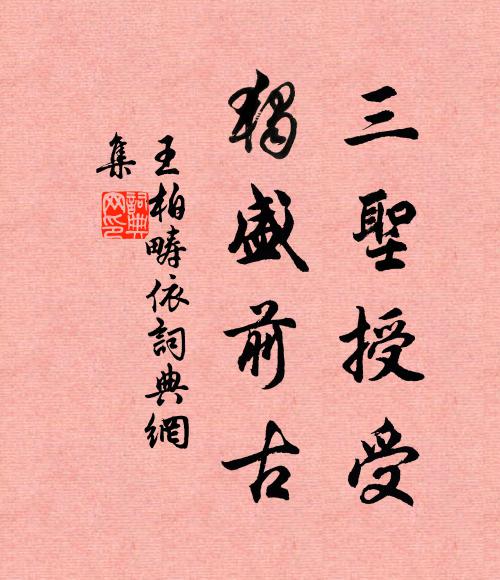 三聖授受
獨盛前古
王柏疇依詞典網
集
詞典網印